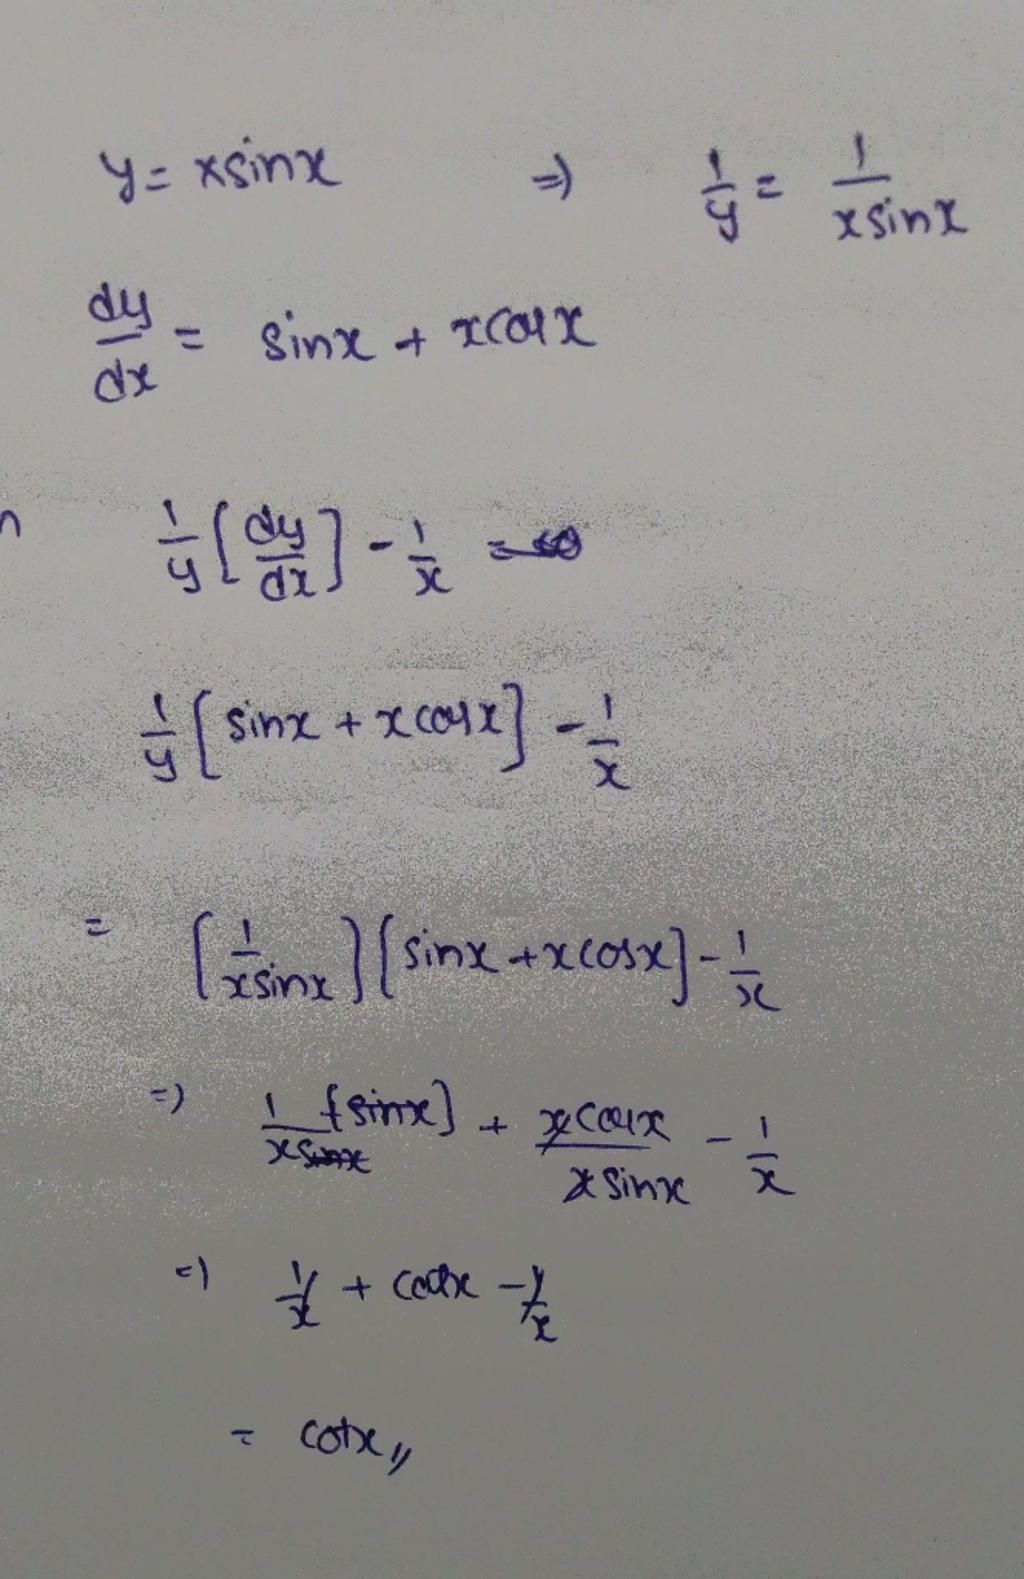 y = xsinx ⇒ 1/y = 1/xsinx
dy/dx = sinx + xcosx
n 1/y [dy/dx] - 1/x =
1/y [sinx + xcosx] - 1/x
= [1/xsinx] [sinx + xcosx] - 1/x
⇒ 1/xsinx [sinx] + xcosx/xsinx - 1/x
⇒ 1/x + cotx - 1/x
= cotx,,